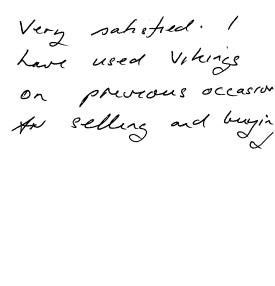 Very satisfied. I
have used Vikings
on previous occasion
selling and buyin